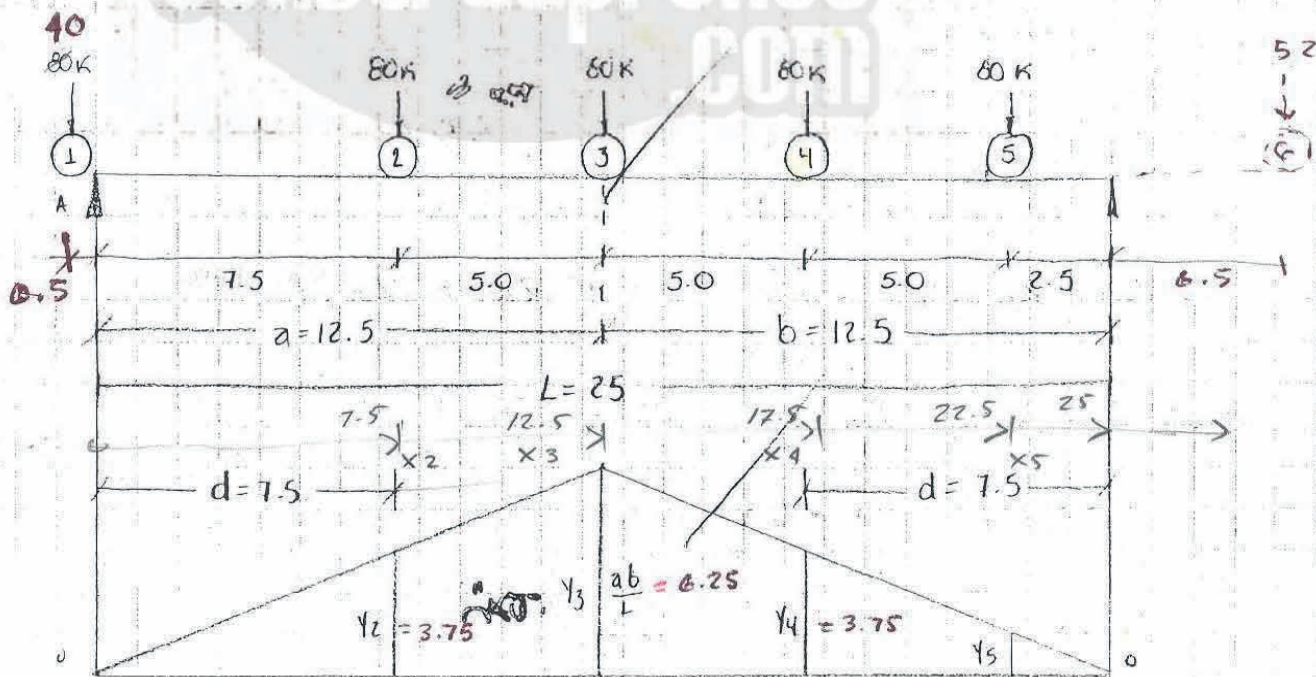 .com
40
80K 80K 80K 80K 80K 52
1 2 3 4 5
A
7.5 5.0 5.0 5.0 2.5 6.5
0.5 1
a=12.5 b=12.5
L=25
7.5 12.5 17.5 22.5 25
x2 x3 x4 x5
d=7.5 d=7.5
Y3 ab/L = 6.25
Y2 = 3.75 Y4 = 3.75
Y5
0 0